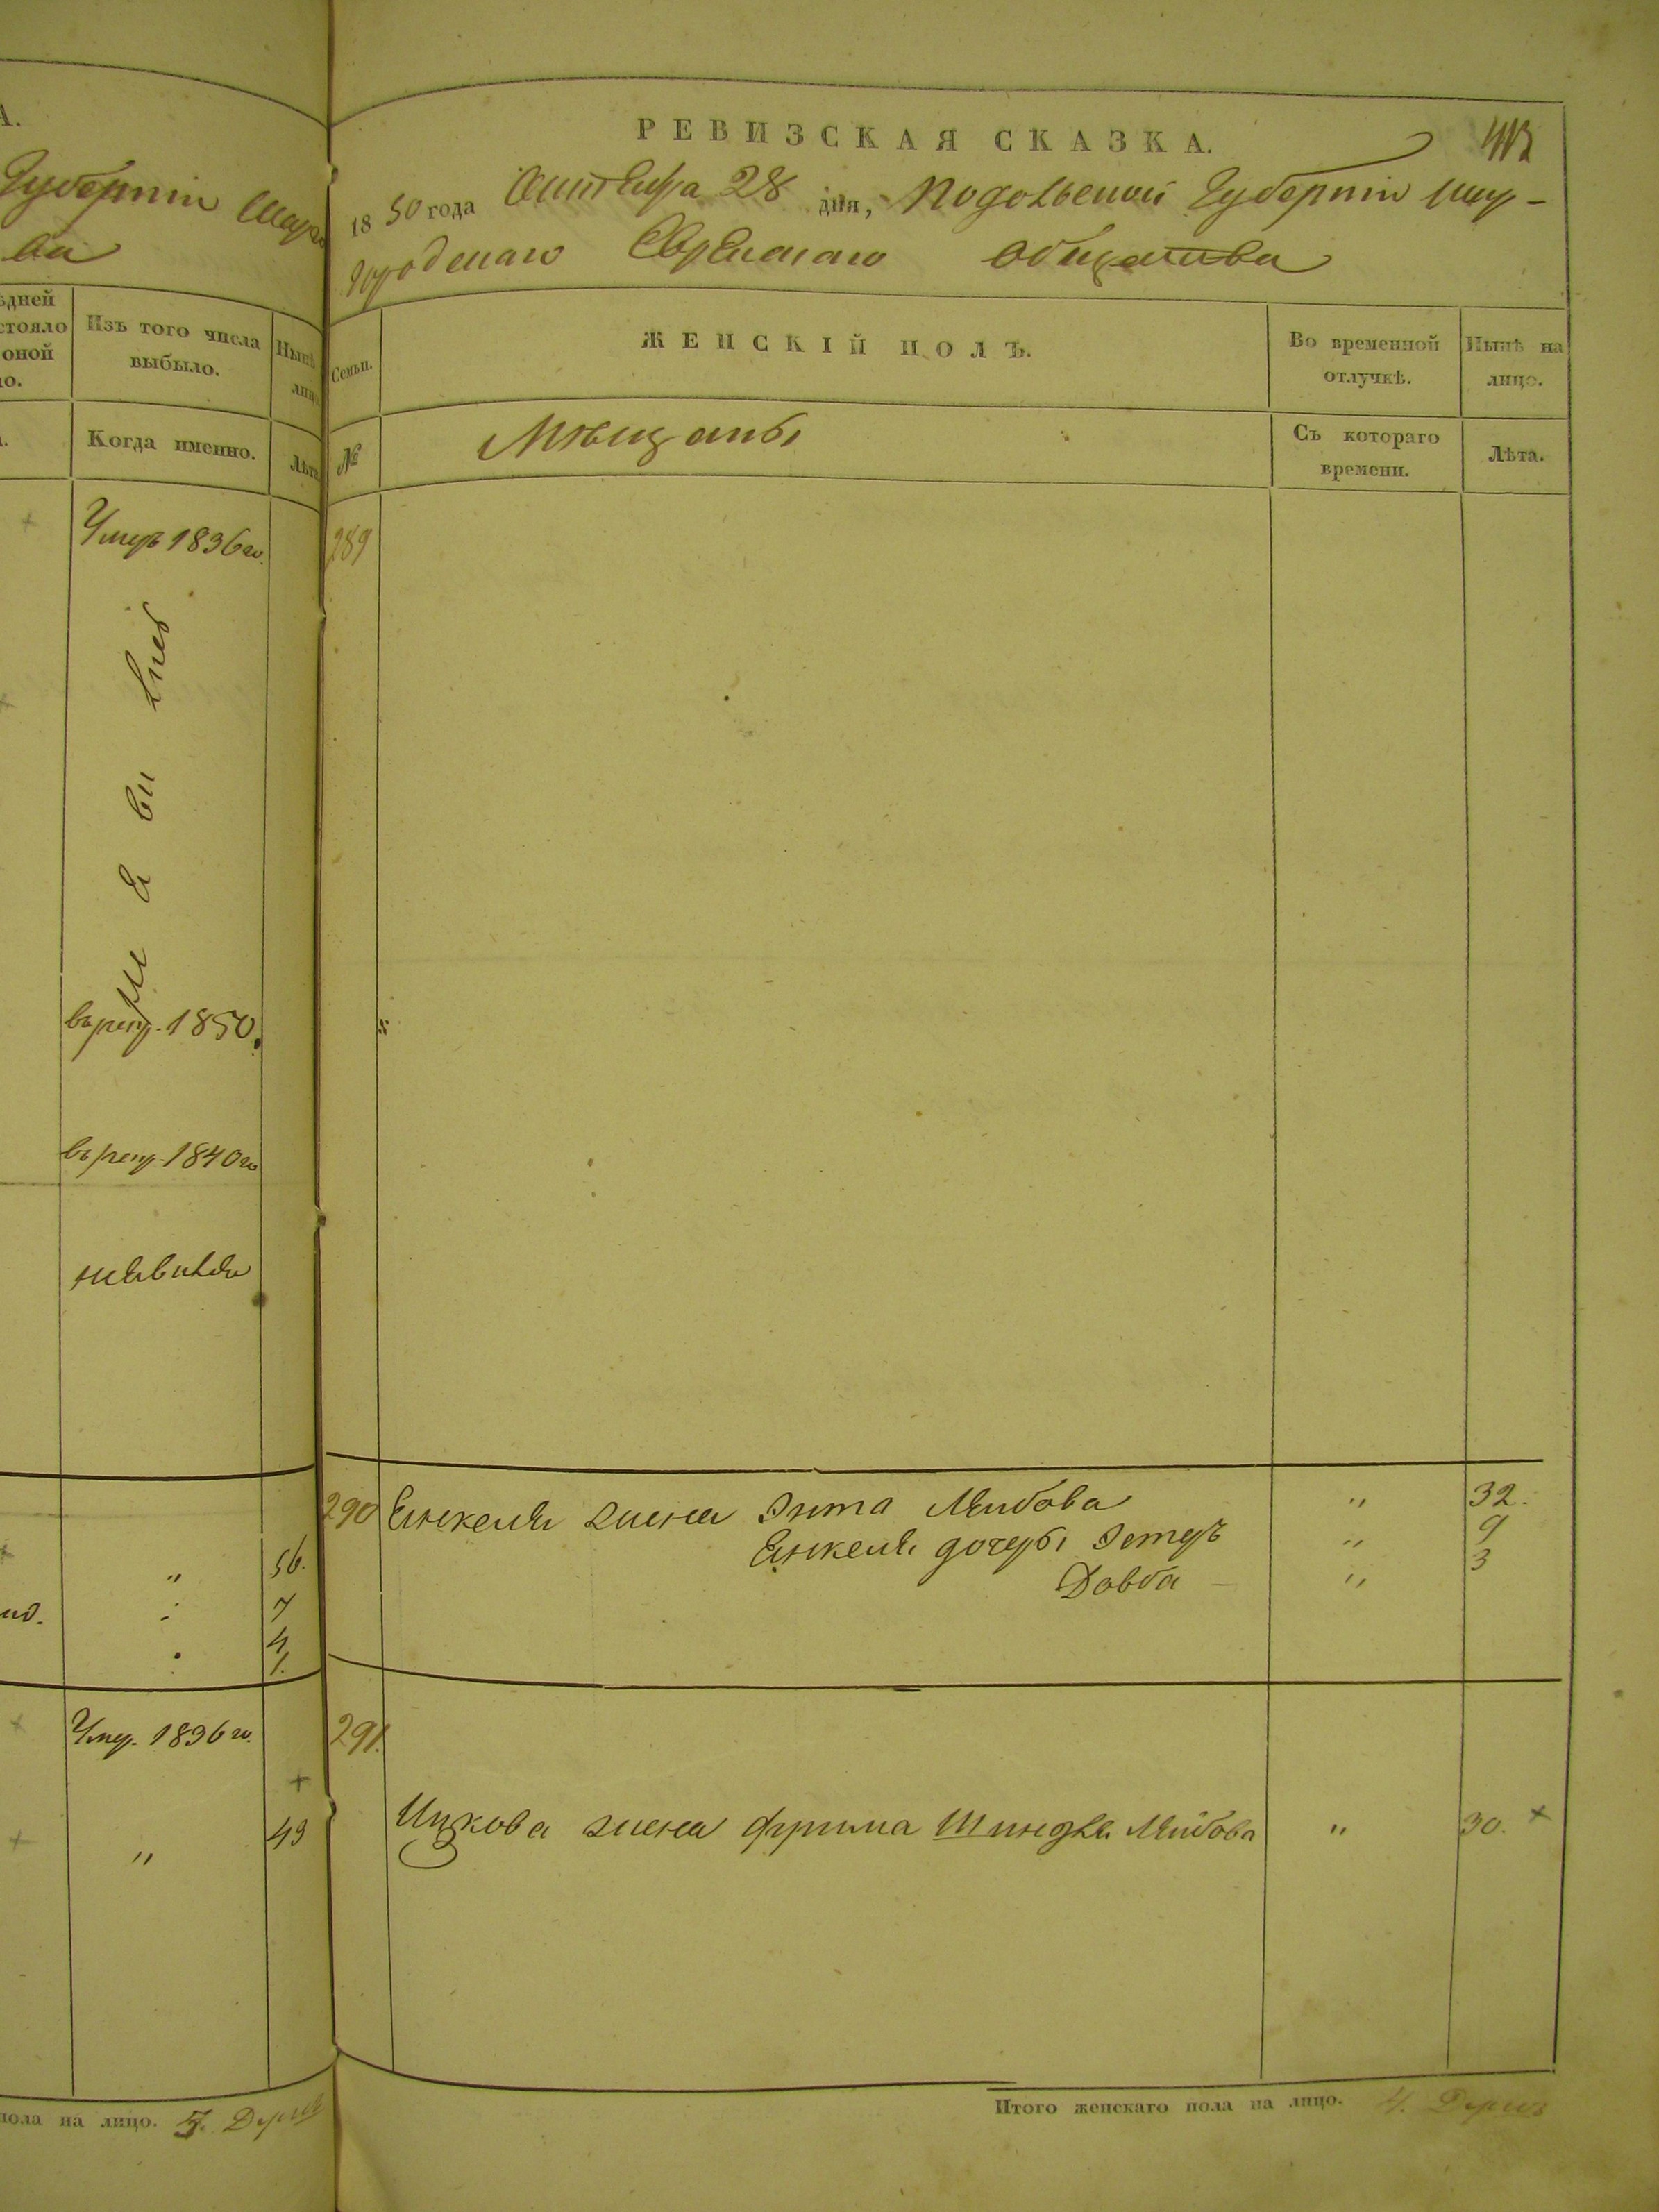 А.
Губерніи Шар
ва
ѣдней
стояло
оной
ло.
Изъ того числа
выбыло.
Нынѣ
лицо
Когда именно.
Лѣта
Умеръ 1836 го.
въ рекр. 1850.
въ рекр. 1840 го
неявился
56.
7
4
1.
Умер. 1836 го.
49
пола на лицо. 5. Душъ
РЕВИЗСКАЯ СКАЗКА.
1850 года Октября 28 дня, Подольской Губерніи Шар-
городскаго Еврейскаго общества
Семьи.
ЖЕНСКІЙ ПОЛЪ.
Во временной
отлучкѣ.
Нынѣ на
лицо.
№
Мѣщаны
Съ котораго
времени.
Лѣта.
289
290 Енкеля жена Энта Лейбова " 32.
Енкеля дочери Эстеръ " 9
Довба " 3
291.
Ицкова жена Фрима Шиндля Лейбова " 30.
Итого женскаго пола на лицо. 4. Душъ